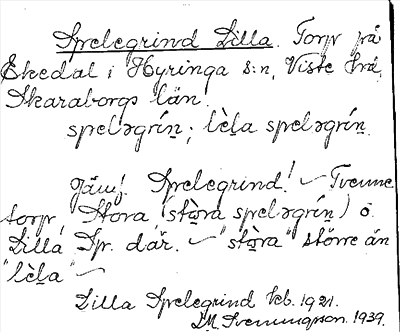 Spelegrind Lilla. Torp på
Ekedal i Hyringa s:n, Viste hrd,
Skaraborgs län.
speləgrín; lèl̠a speləgrín.
Jämf. Spelegrind! ~ Tvenne
torp, Stora (stòra speləgrín) o.
Lilla Sp. där. ~ "stòra" större än
"lèl̠a" ~
Lilla Spelegrind beb. 1921.
M. Svenungson. 1939.